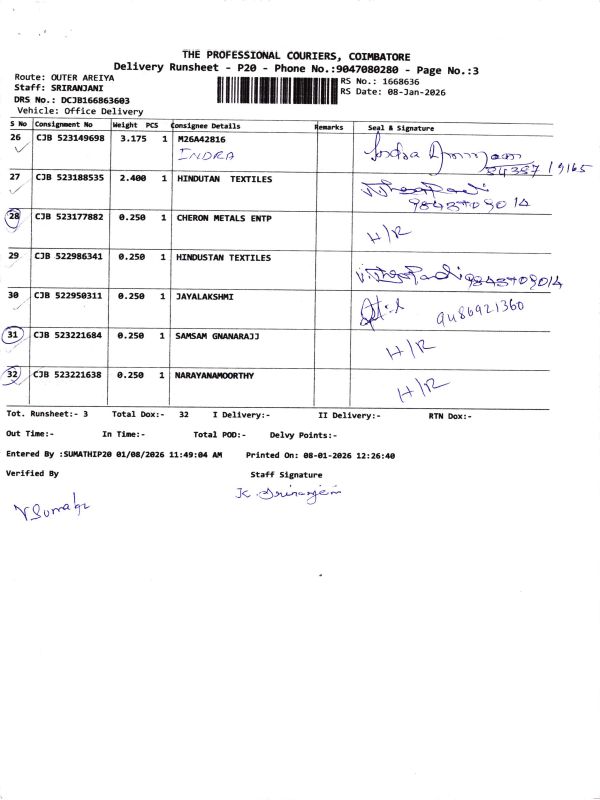 THE PROFESSIONAL COURIERS, COIMBATORE
Delivery Runsheet - P20 - Phone No.:9047080280 - Page No.:3
Route: OUTER AREIYA
RS No.: 1668636
Staff: SRIRANJANI
RS Date: 08-Jan-2026
DRS No.: DCJB166863603
Vehicle: Office Delivery
S No Consignment No Weight PCS Consignee Details Remarks Seal & Signature
26 CJB 523149698 3.175 1 M26A42816
INDRA
27 CJB 523188535 2.400 1 HINDUTAN TEXTILES
28 CJB 523177882 0.250 1 CHERON METALS ENTP H/R
29 CJB 522986341 0.250 1 HINDUSTAN TEXTILES
30 CJB 522950311 0.250 1 JAYALAKSHMI 9486921360
31 CJB 523221684 0.250 1 SAMSAM GNANARAJJ H/R
32 CJB 523221638 0.250 1 NARAYANAMOORTHY H/R
Tot. Runsheet:- 3 Total Dox:- 32 I Delivery:- II Delivery:- RTN Dox:-
Out Time:- In Time:- Total POD:- Delvy Points:-
Entered By :SUMATHIP20 01/08/2026 11:49:04 AM Printed On: 08-01-2026 12:26:40
Verified By Staff Signature